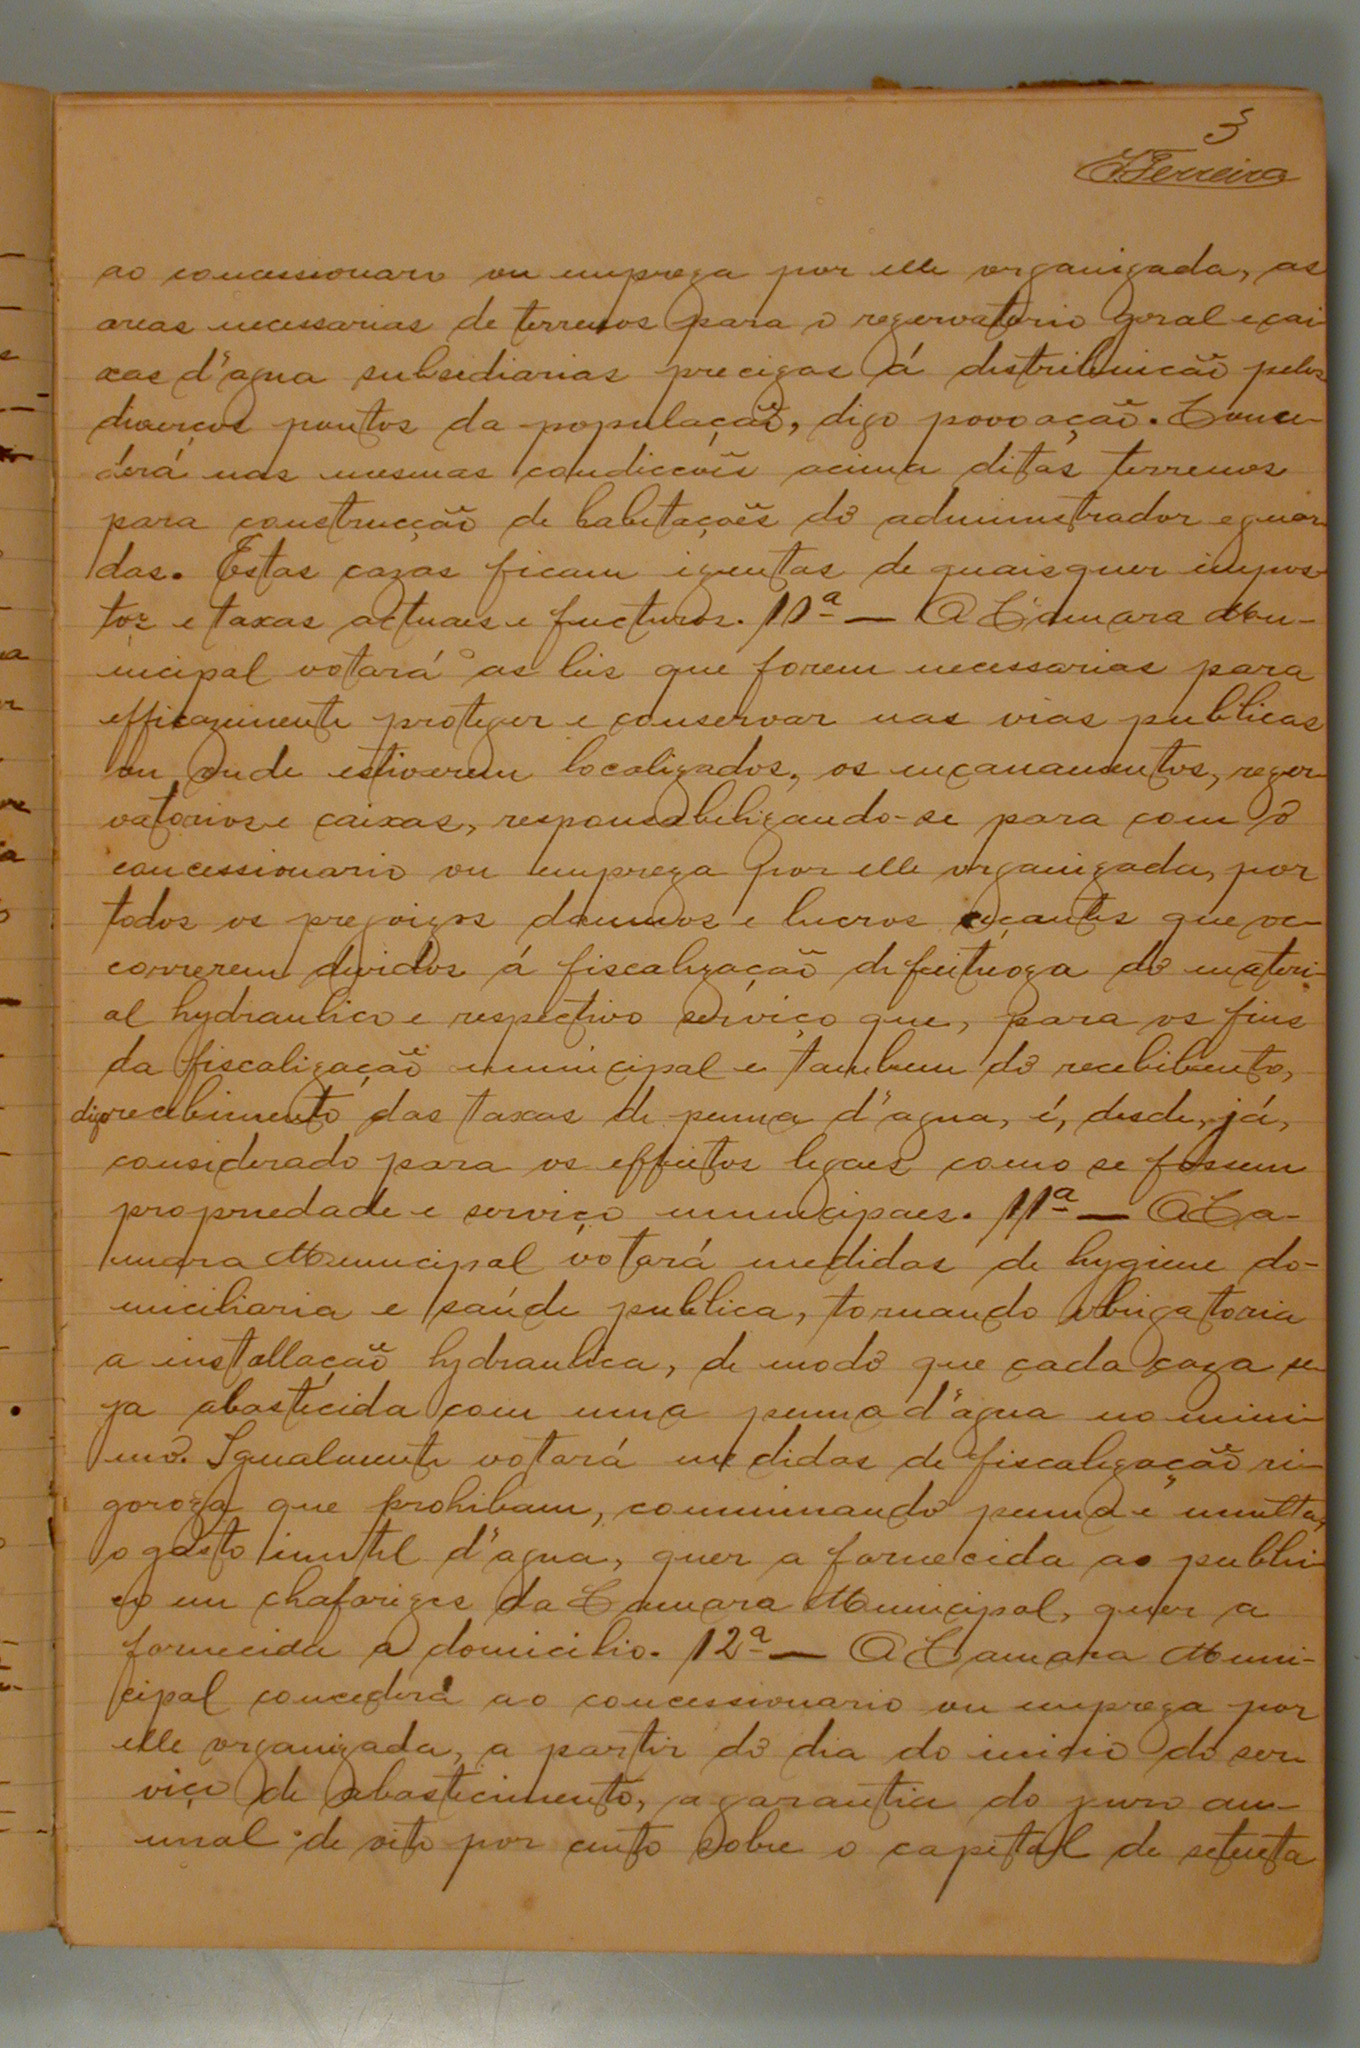 3
JFerreira
ao concessionaro ou empreza por elle organizada, as
areas necessarias de terrenos para o rezervatorio geral e cai
xas d'agua subsidiarias precizas á distribuição pelos
diverços pontos da população, digo povoação. Conce-
derá nas mesmas condicções acima ditas terrenos
para construcção de habitações do administrador e guar
das. Estas cazas ficam izentas de quaisquer impos
tos e taxas actuaes e fucturos. 10ª — A Camara Mu-
nicipal votará as leis que forem necessarias para
efficazmente proteger e conservar nas vias publicas
ou onde estiverem localizados, os encanamentos, rezer
vatorios e caixas, responsabelizando-se para com o
concessionario ou empreza por elle organizada, por
todos os prejoizos damnos e lucros eçantes que oc-
correrem dividos á fiscalização defeituoza do materi-
al hydraulico e respectivo serviço que, para os fins
da fiscalização municipal e tambem do recebibento,
digo recebimento das taxas de penna d'agua, é, desde, já,
considerado para os effeitos legaes como se fossem
propriedade e serviço municipaes. 11ª — A Ca-
mara Municipal votará medidas de hygiene do-
miciliaria e saúde publica, tornando obrigatoria
a installação hydraulica, de modo que cada caza se
ja abastecida com uma penna d'agua no mini-
mo. Igualmente votará medidas de fiscalização ri-
goroza que prohibam, comminando penna e multa,
o gasto inutil d'agua, quer a fornecida ao publi-
co em chafarizes da Camara Municipal, quer a
fornecida a domicilio. 12ª — A Camara Muni-
cipal concederá ao concessionario ou empreza por
elle organizada, a partir do dia do inicio do ser
viço de abastecimento, a garantia do juro an-
nual de oito por cento sobre o capital de setenta